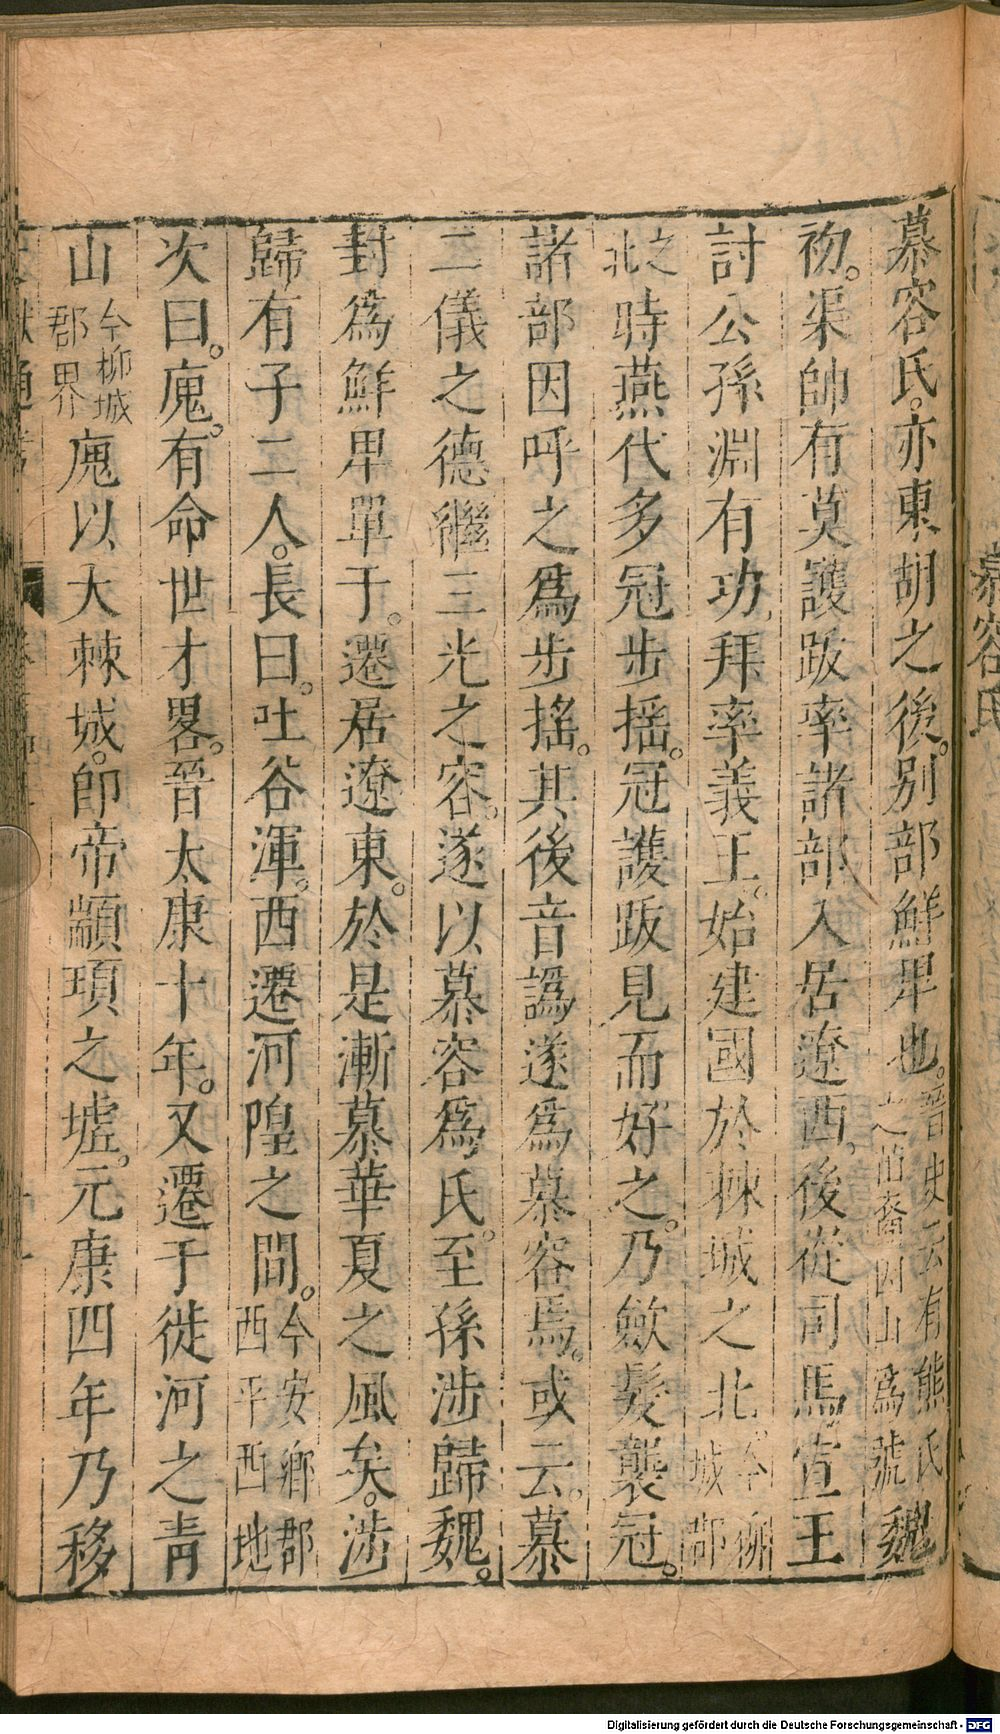 慕容氏。亦東胡之後。別部鮮卑也。晉史云有熊氏之苗裔因山爲號魏
初。渠帥有莫護跋率諸部入居遼西。後從司馬宣王
討公孫淵有功拜率義王。始建國於棘城之北。今柳城郡
之北時燕代多冠步搖。冠護跋見而好之。乃斂髮襲冠。
諸部因呼之爲步搖。其後音譌遂爲慕容焉。或云。慕
二儀之德繼三光之容。遂以慕容爲氏。至孫涉歸魏。
封爲鮮卑單于。遷居遼東。於是漸慕華夏之風矣。涉
歸有子二人。長曰。吐谷渾。西遷河隍之間。今安鄉郡西平西地
次曰。廆。有命世才畧。晉太康十年。又遷于徙河之靑
山今柳城郡界廆以大棘城。卽帝顓頊之墟。元康四年乃移
慕容氏
Digitalisierung gefördert durch die Deutsche Forschungsgemeinschaft - DFG